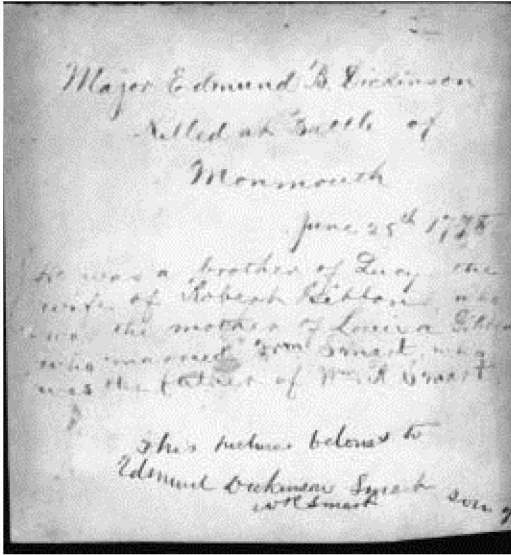 Major Edmund B. Dickinson
Killed at Battle of
Monmouth
June 28th 1778
He was a brother of Lucy the
wife of Robert Gibbon, who
was the mother of Louisa Gibbon
who married Wm Smart, who
was the father of Wm R Smart.
This picture belongs to
Edmund Dickinson Smart son of
Wm Smart